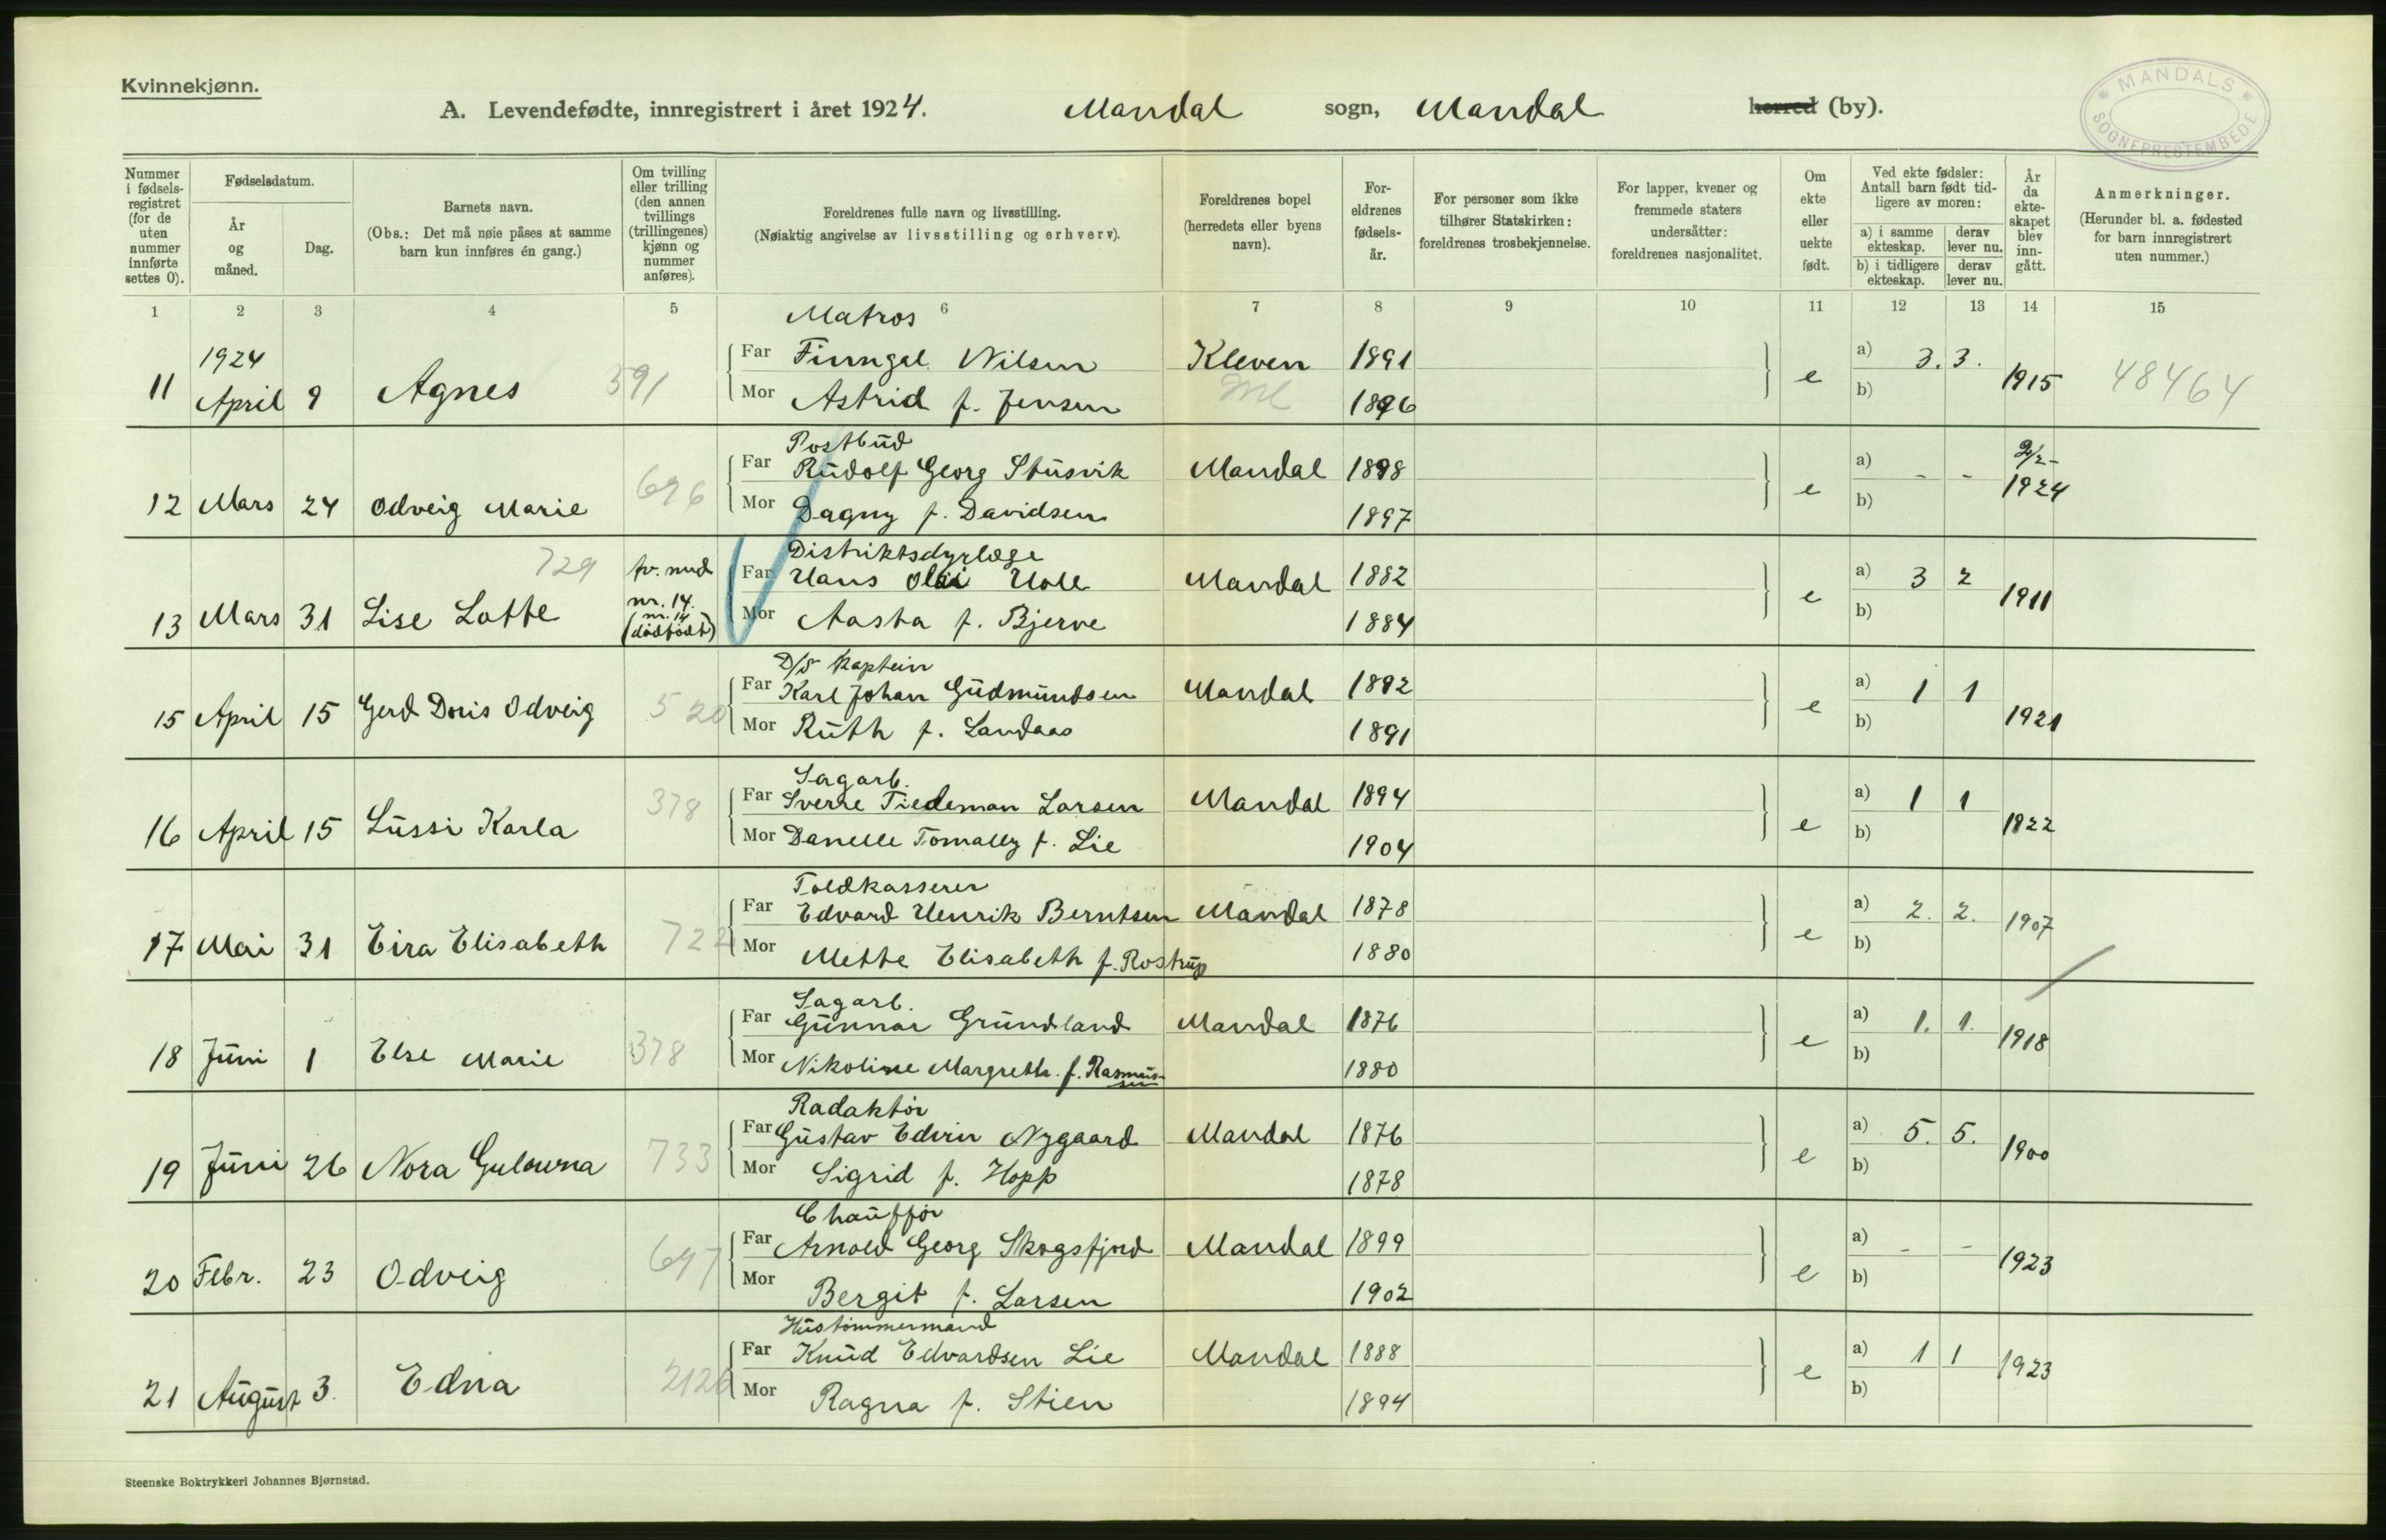 Kvinnekjønn.
A. Levendefødte, innregistrert i året 1924. Mandal sogn, Mandal herred (by).
MANDALS SOGNEPRESTEMBEDE
Nummer i fødsels-registret (for de uten nummer innførte settes 0).
Fødselsdatum.
År og måned.
Dag.
Barnets navn.
(Obs.: Det må nøie påses at samme barn kun innføres én gang.)
Om tvilling eller trilling (den annen tvillings (trillingenes) kjønn og nummer anføres).
Foreldrenes fulle navn og livsstilling.
(Nøiaktig angivelse av livsstilling og erhverv).
Foreldrenes bopel (herredets eller byens navn).
For-eldrenes fødsels-år.
For personer som ikke tilhører Statskirken: foreldrenes trosbekjennelse.
For lapper, kvener og fremmede staters undersåtter: foreldrenes nasjonalitet.
Om ekte eller uekte født.
Ved ekte fødsler: Antall barn født tid-ligere av moren:
a) i samme ekteskap. derav lever nu.
b) i tidligere ekteskap. derav lever nu.
År da ekte-skapet blev inn-gått.
Anmerkninger.
(Herunder bl. a. fødested for barn innregistrert uten nummer.)
1 2 3 4 5 6 7 8 9 10 11 12 13 14 15
Matros
1924 Far Finngal Nilsen Kleven 1891 a) 3. 3.
11 April 9 Agnes 591 Mor Astrid f. Jensen Ml 1896 e b) 1915 48464
Postbud
Far Rudolf Georg Stusvik Mandal 1898 a) - - 2/2-
12 Mars 24 Odveig Marie 696 Mor Dagny f. Davidsen 1897 e b) 1924
Distriktsdyrlæge
729 tv. med Far Hans Olai Holl Mandal 1882 a) 3 2
13 Mars 31 Lise Lotte nr. 14. Mor Aasta f. Bjerve 1884 e b) 1911
nr. 14
(dødfødt)
D/S Kaptein
Far Karl Johan Gudmundsen Mandal 1892 a) 1 1
15 April 15 Gerd Doris Odveig 520 Mor Ruth f. Landaas 1891 e b) 1921
Sagarb.
378 Far Sverre Tiedeman Larsen Mandal 1894 a) 1 1
16 April 15 Lussi Karla Mor Danelle Tomally f. Lie 1904 e b) 1822
Toldkasserer
Far Edvard Henrik Berntsen Mandal 1878 a) 2. 2.
17 Mai 31 Eira Elisabeth 722 Mor Mette Elisabeth f. Rostrup 1880 e b) 1907
Sagarb.
Far Gunnar Grundland Mandal 1876 a) 1. 1.
18 Juni 1 Else Marie 378 Mor Nikoline Margreth. f. Rasmus-
sen 1880 e b) 1918
Radaktør
Far Gustav Edvin Nygaard Mandal 1876 a) 5. 5.
19 Juni 26 Nora Gulowna 733 Mor Sigrid f. Hopp 1878 e b) 1900
Chauffør
Far Arnold Georg Skogsfjord Mandal 1899 a) - -
20 Febr. 23 Odveig 697 Mor Bergit f. Larsen 1902 e b) 1923
Hustømmermand
Far Knud Edvardsen Lie Mandal 1888 a) 1 1
21 August 3. Edna 2126 Mor Ragna f. Stien 1894 e b) 1923
Steenske Boktrykkeri Johannes Bjørnstad.